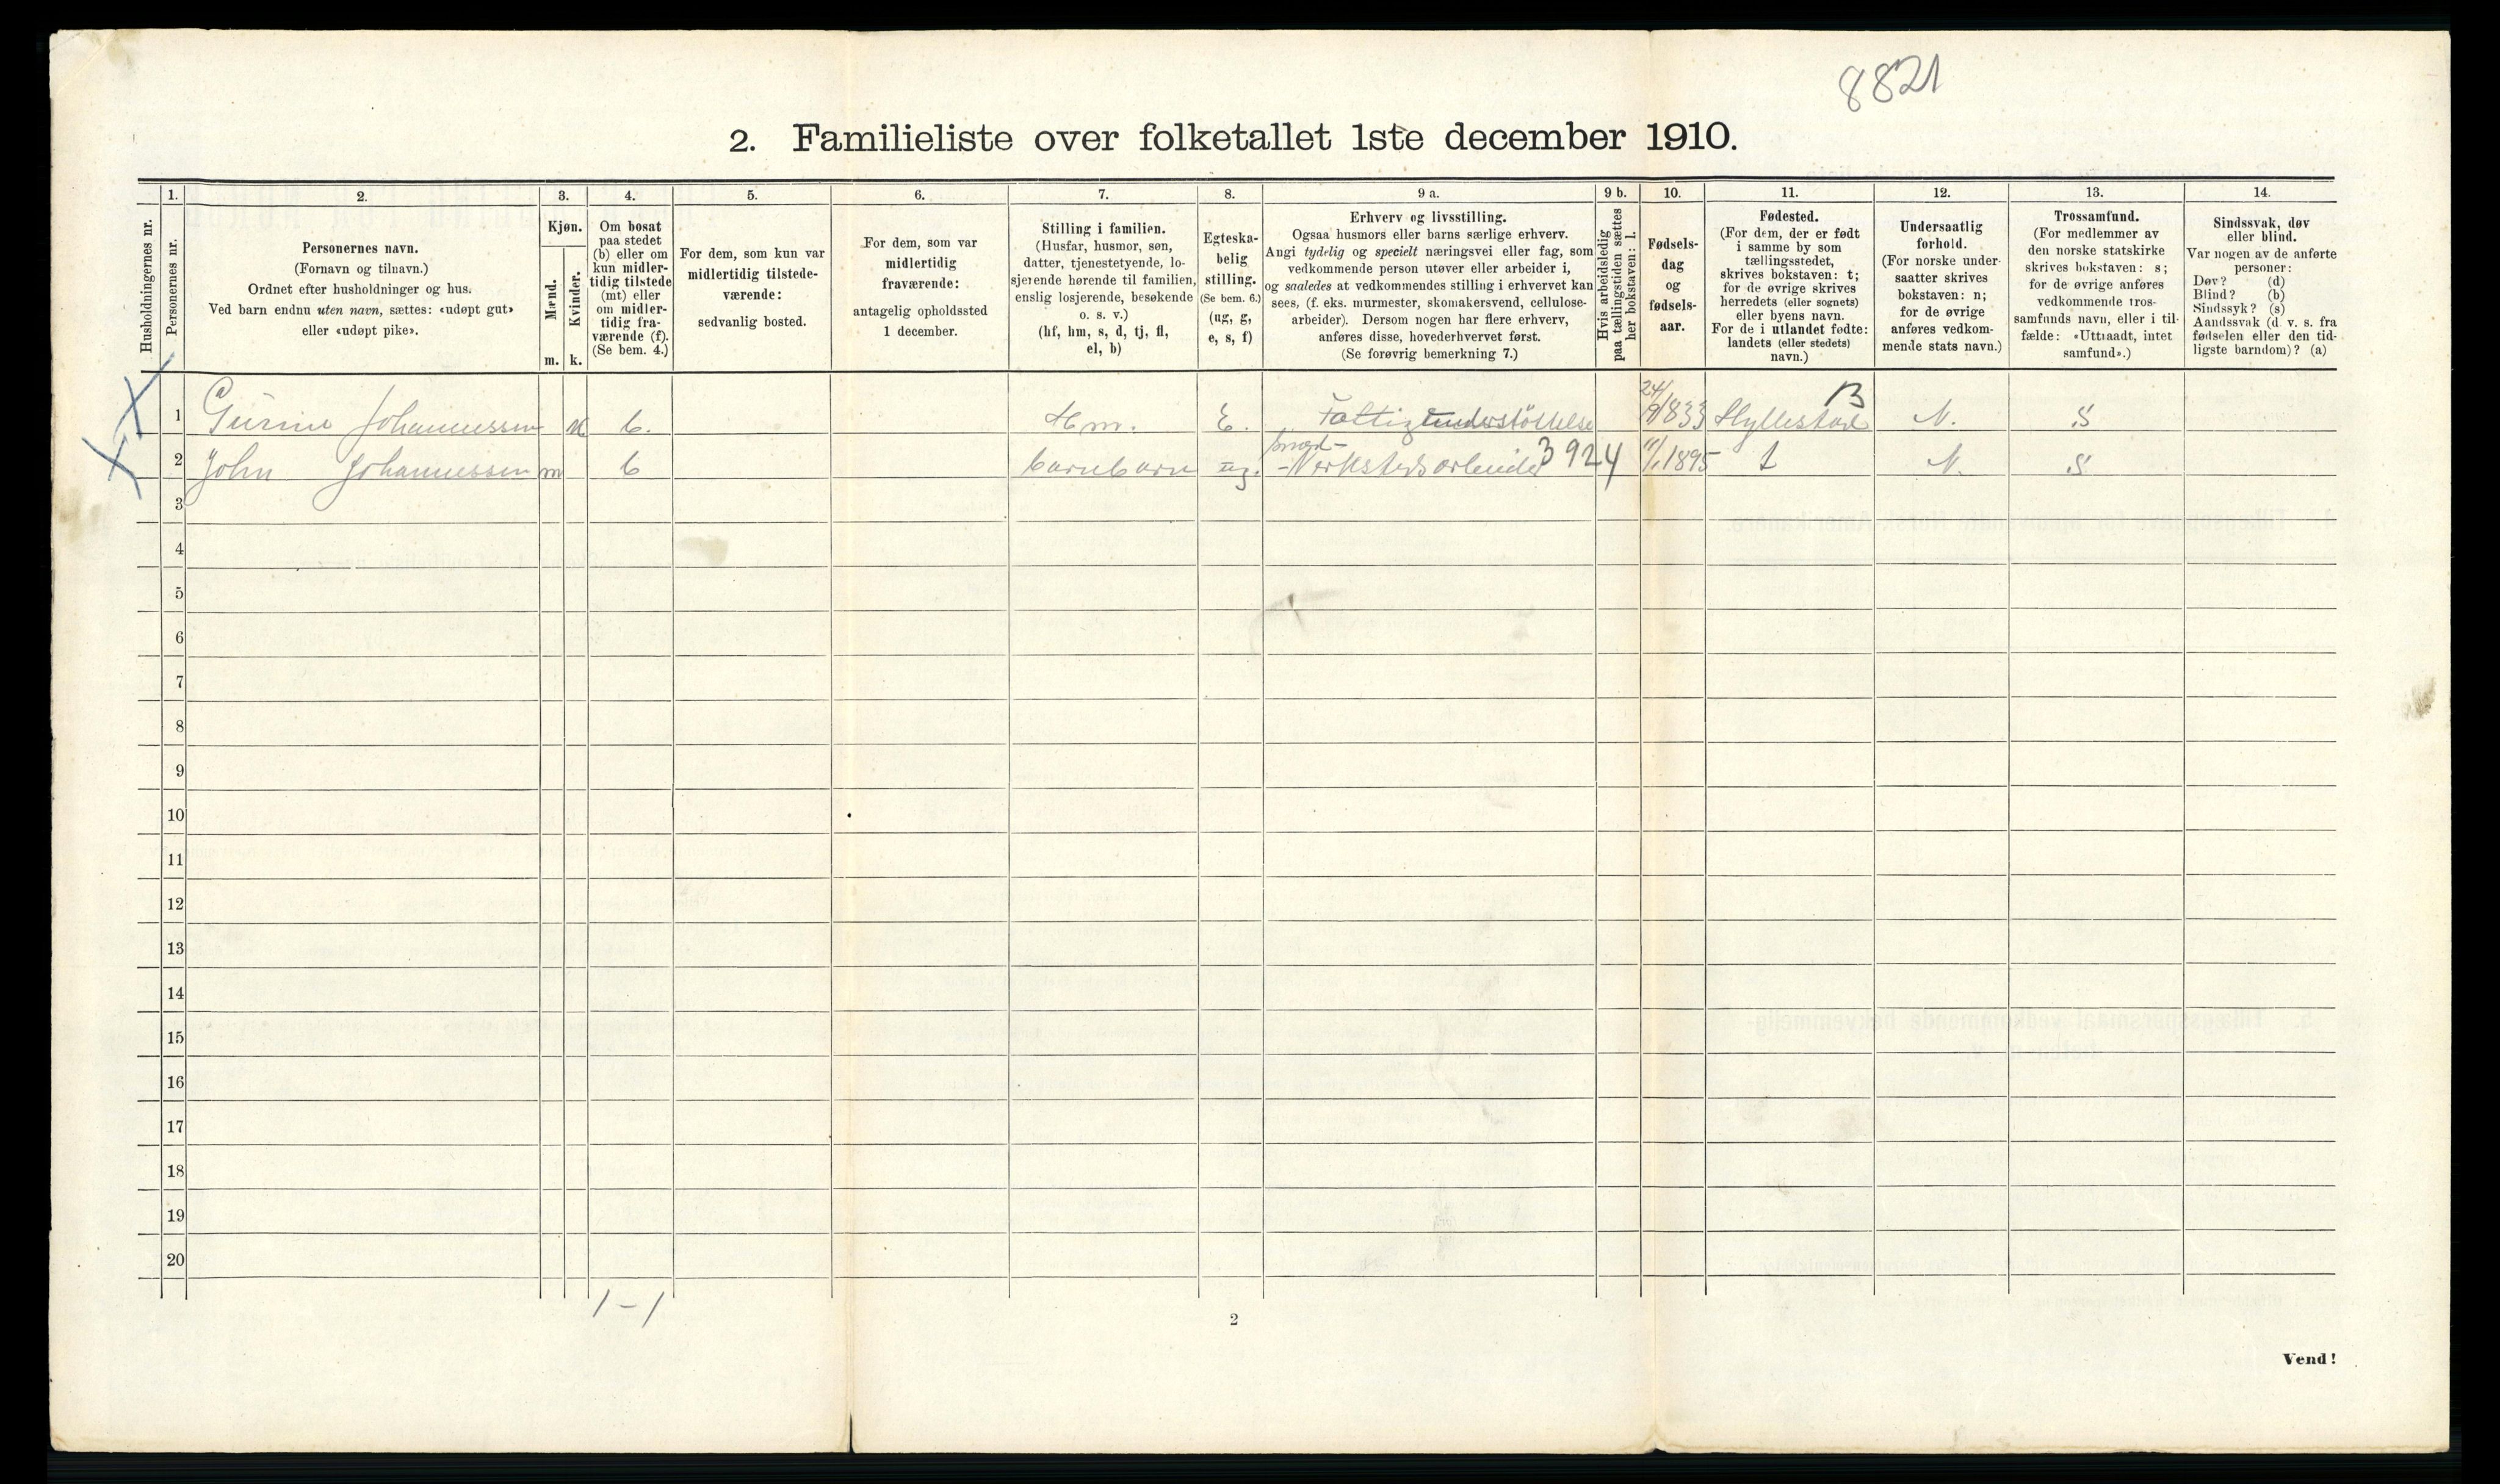 8821
2. Familieliste over folketallet 1ste december 1910.
Husholdningernes nr.
1.
Personernes nr.
2.
Personernes navn.
(Fornavn og tilnavn.)
Ordnet efter husholdninger og hus.
Ved barn endnu uten navn, sættes: «udøpt gut»
eller «udøpt pike».
3.
Kjøn.
Mænd.
m.
Kvinder.
k.
4.
Om bosat
paa stedet
(b) eller om
kun midler-
tidig tilstede
(mt) eller
om midler-
tidig fra-
værende (f).
(Se bem. 4.)
5.
For dem, som kun var
midlertidig tilstede-
værende:
sedvanlig bosted.
6.
For dem, som var
midlertidig
fraværende:
antagelig opholdssted
1 december.
7.
Stilling i familien.
(Husfar, husmor, søn,
datter, tjenestetyende, lo-
sjerende hørende til familien,
enslig losjerende, besøkende
o. s. v.)
(hf, hm, s, d, tj, fl,
el, b)
8.
Egteska-
belig
stilling.
(Se bem. 6.)
(ug, g,
e, s, f)
9 a.
Erhverv og livsstilling.
Ogsaa husmors eller barns særlige erhverv.
Angi tydelig og specielt næringsvei eller fag, som
vedkommende person utøver eller arbeider i,
og saaledes at vedkommendes stilling i erhvervet kan
sees, (f. eks. murmester, skomakersvend, cellulose-
arbeider). Dersom nogen har flere erhverv,
anføres disse, hovederhvervet først.
(Se forøvrig bemerkning 7.)
9 b.
Hvis arbeidsledig
paa tællingstiden sættes
her bokstaven: l.
10.
Fødsels-
dag
og
fødsels-
aar.
11.
Fødested.
(For dem, der er født
i samme by som
tællingsstedet,
skrives bokstaven: t;
for de øvrige skrives
herredets (eller sognets)
eller byens navn.
For de i utlandet fødte:
landets (eller stedets)
navn.)
12.
Undersaatlig
forhold.
(For norske under-
saatter skrives
bokstaven: n;
for de øvrige
anføres vedkom-
mende stats navn.)
13.
Trossamfund.
(For medlemmer av
den norske statskirke
skrives bokstaven: s;
for de øvrige anføres
vedkommende tros-
samfunds navn, eller i til-
fælde: «Uttraadt, intet
samfund».)
14.
Sindssvak, døv
eller blind.
Var nogen av de anførte
personer:
Døv? (d)
Blind? (b)
Sindssyk? (s)
Aandssvak (d. v. s. fra
fødselen eller den tid-
ligste barndom)? (a)
1 Gurine Johannessen k b. Hm. E. Fattigunderstöttelse 1833 Hyllestad B N. S
2 John Johannessen m b barnbarn ug. Verkstedsarbeider 3924 11/1 1895 t N. S
3
4
5
6
7
8
9
10
11
12
13
14
15
16
17
18
19
20
1 - 1
2
Vend!